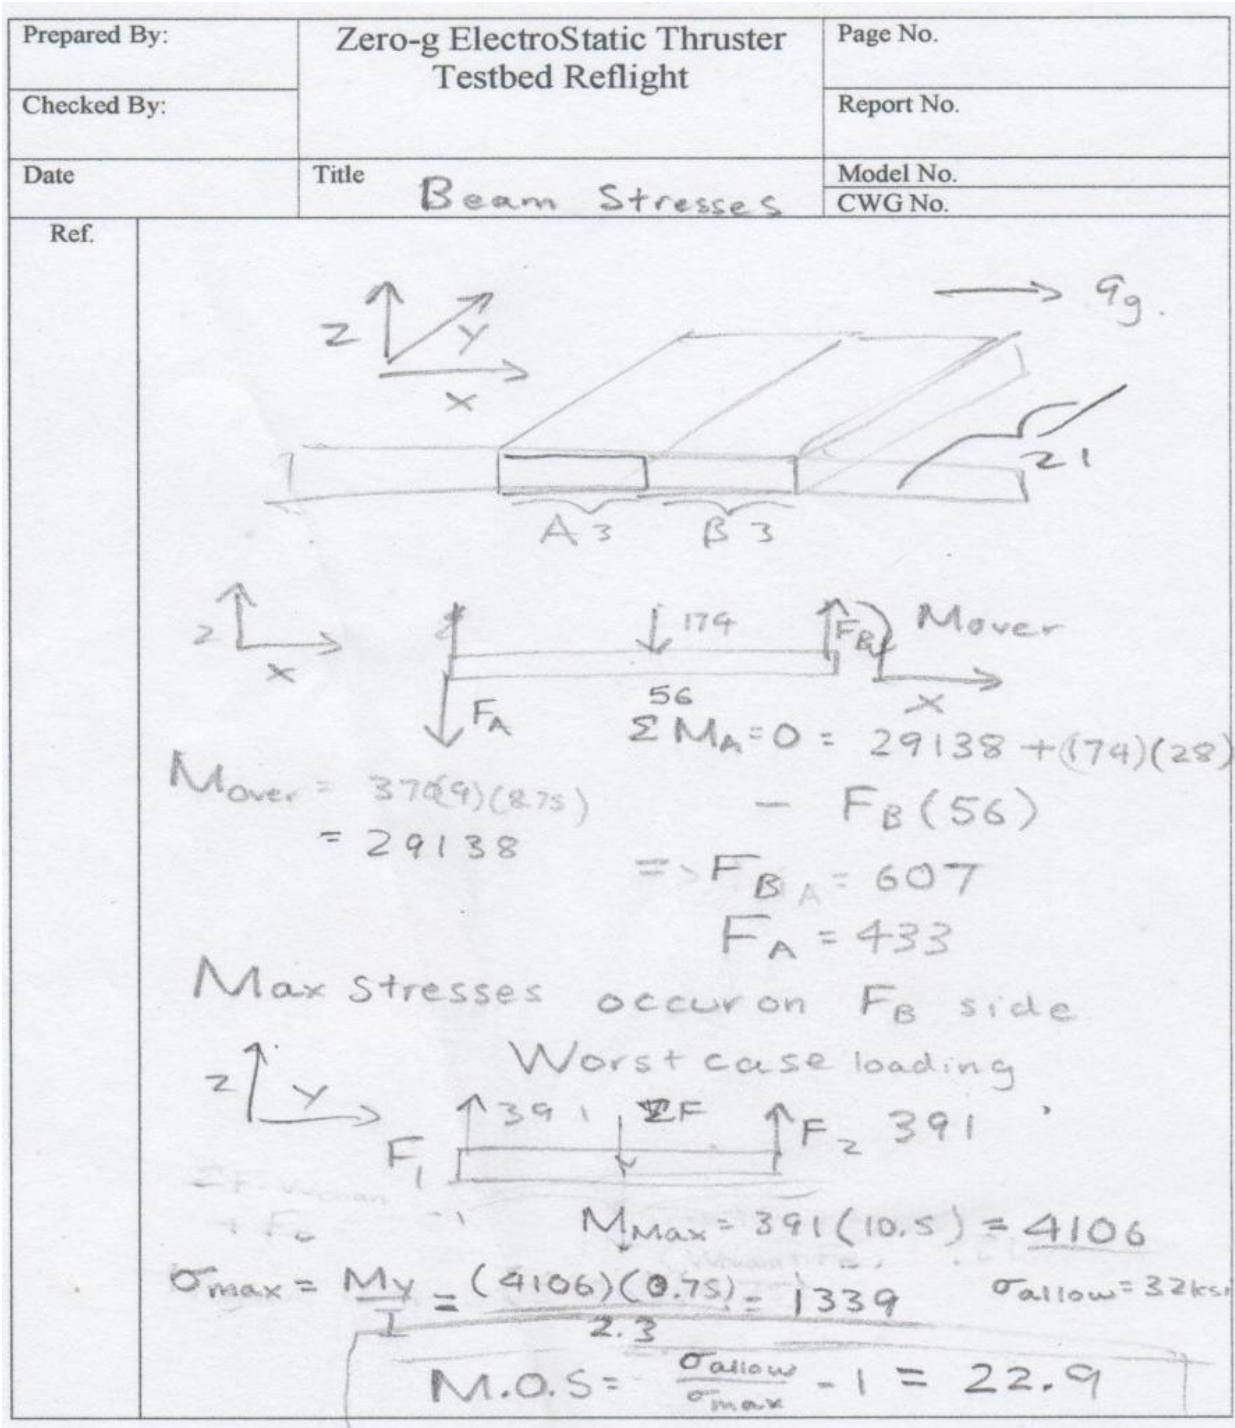 Prepared By:
Zero-g ElectroStatic Thruster
Testbed Reflight
Page No.
Checked By:
Report No.
Date
Title
Beam Stresses
Model No.
CWG No.
Ref.
Z
Y
X
9g.
21
A 3
B 3
Z
X
174
FB
Mover
FA
56
X
ΣMA=0 = 29138 + (174)(28)
- FB(56)
Mover = 370(9)(8.75)
= 29138
=> FB = 607
FA = 433
Max stresses occur on FB side
Worst case loading
Z
Y
391
ΣF
F1
F2 391
MMax = 391(10.5) = 4106
σmax = My/I = (4106)(0.75)/2.3 = 1339
σallow = 32ksi
M.O.S = σallow/σmax - 1 = 22.9